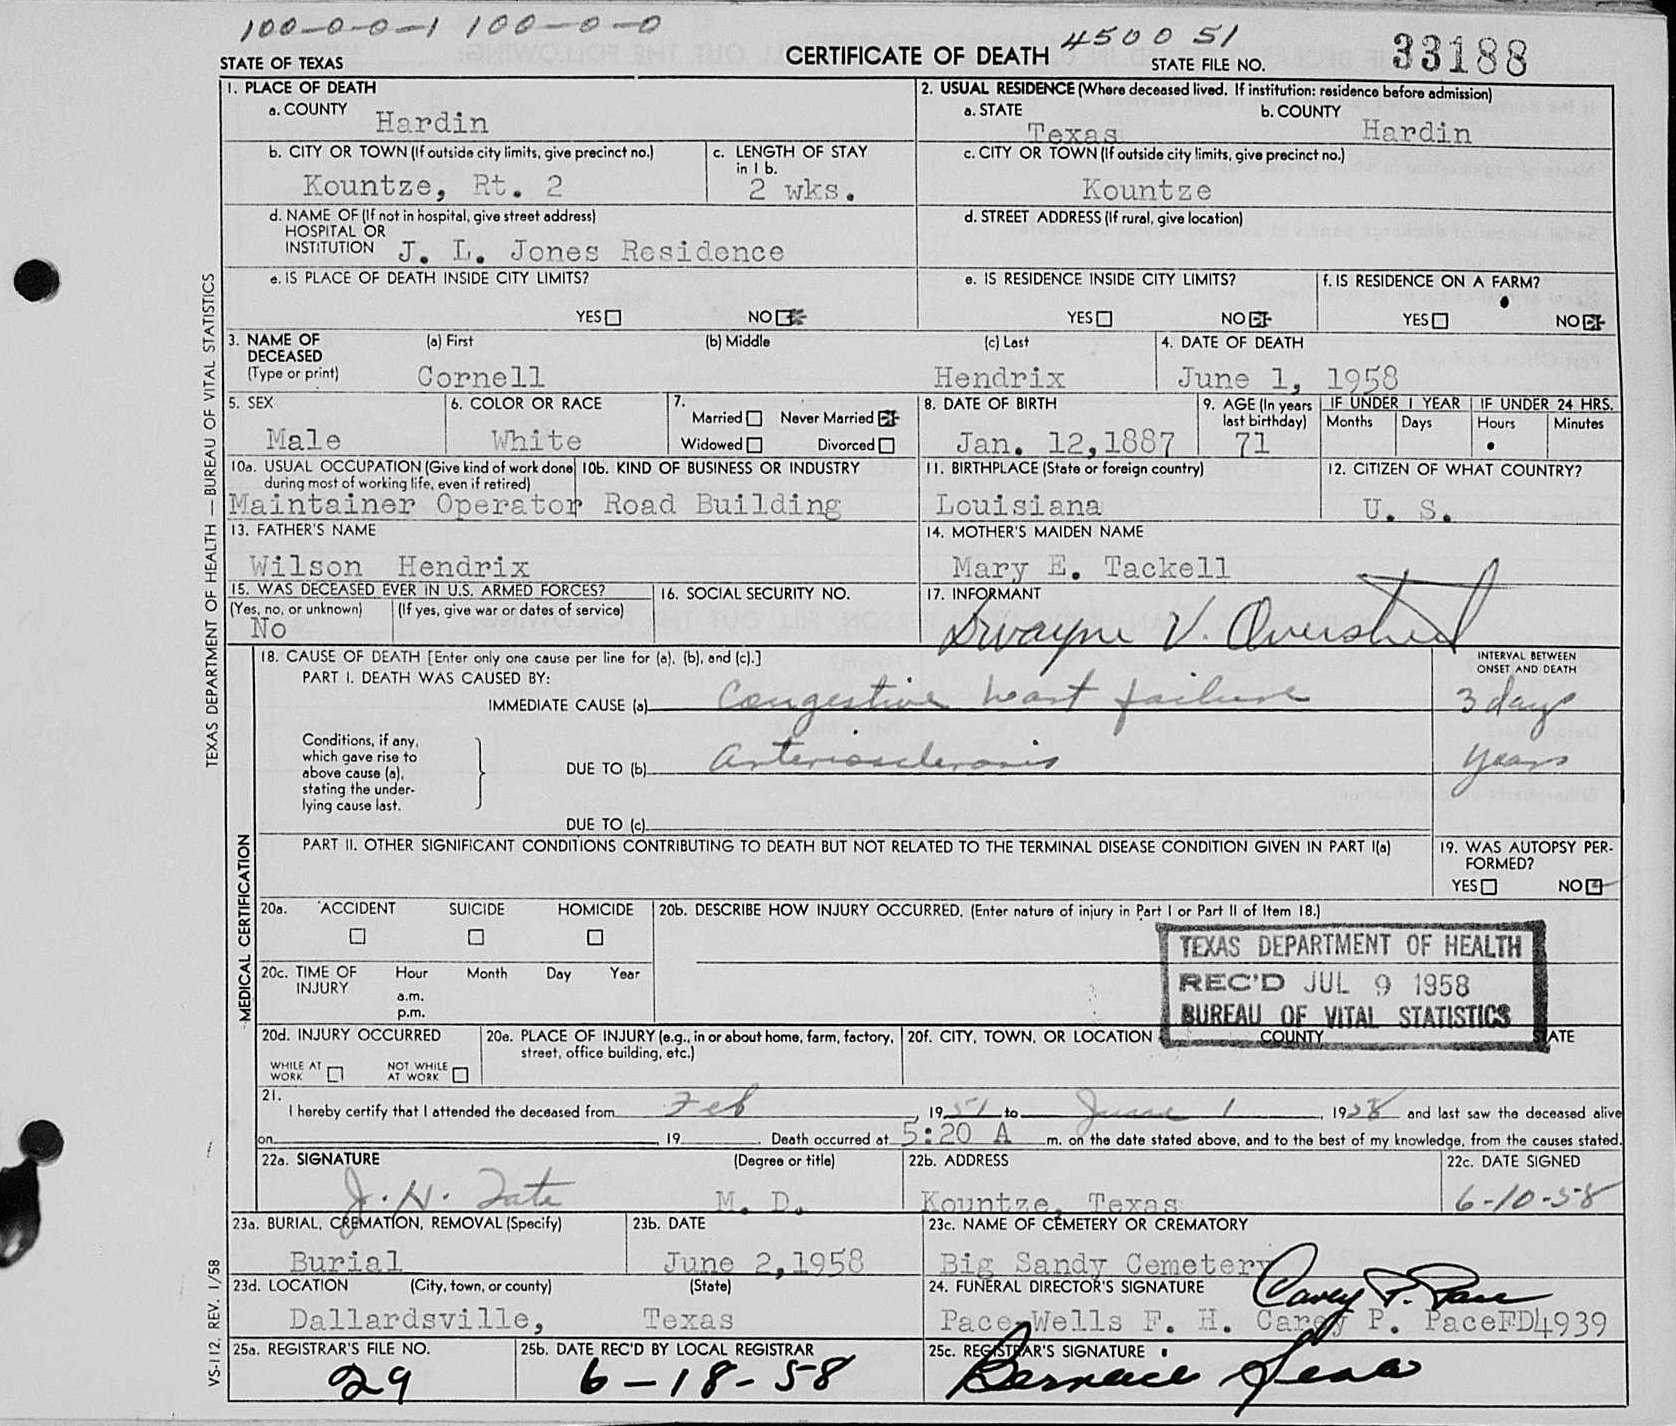 100-0-0-1 100-0-0
STATE OF TEXAS
CERTIFICATE OF DEATH 4500 51
STATE FILE NO. 33188
1. PLACE OF DEATH
a. COUNTY Hardin
2. USUAL RESIDENCE (Where deceased lived. If institution: residence before admission)
a. STATE Texas
b. COUNTY Hardin
b. CITY OR TOWN (If outside city limits, give precinct no.)
Kountze, Rt. 2
c. LENGTH OF STAY
in 1 b.
2 wks.
c. CITY OR TOWN (If outside city limits, give precinct no.)
Kountze
d. NAME OF (If not in hospital, give street address)
HOSPITAL OR
INSTITUTION J. L. Jones Residence
d. STREET ADDRESS (If rural, give location)
e. IS PLACE OF DEATH INSIDE CITY LIMITS?
YES NO
e. IS RESIDENCE INSIDE CITY LIMITS?
YES NO
f. IS RESIDENCE ON A FARM?
YES NO
3. NAME OF
DECEASED
(Type or print)
(a) First
Cornell
(b) Middle
(c) Last
Hendrix
4. DATE OF DEATH
June 1, 1958
5. SEX
Male
6. COLOR OR RACE
White
7.
Married Never Married
Widowed Divorced
8. DATE OF BIRTH
Jan. 12,1887
9. AGE (In years
last birthday)
71
IF UNDER 1 YEAR
Months Days
IF UNDER 24 HRS.
Hours Minutes
10a. USUAL OCCUPATION (Give kind of work done
during most of working life, even if retired)
Maintainer Operator
10b. KIND OF BUSINESS OR INDUSTRY
Road Building
11. BIRTHPLACE (State or foreign country)
Louisiana
12. CITIZEN OF WHAT COUNTRY?
U. S.
13. FATHER'S NAME
Wilson Hendrix
14. MOTHER'S MAIDEN NAME
Mary E. Tackell
15. WAS DECEASED EVER IN U.S. ARMED FORCES?
(Yes, no, or unknown) (If yes, give war or dates of service)
No
16. SOCIAL SECURITY NO.
17. INFORMANT
Dwayne V. Overstreet
18. CAUSE OF DEATH [Enter only one cause per line for (a), (b), and (c).]
INTERVAL BETWEEN
ONSET AND DEATH
PART I. DEATH WAS CAUSED BY:
IMMEDIATE CAUSE (a) Congestive heart failure 3 days
Conditions, if any,
which gave rise to
above cause (a),
stating the under-
lying cause last.
DUE TO (b) Arteriosclerosis years
DUE TO (c)
PART II. OTHER SIGNIFICANT CONDITIONS CONTRIBUTING TO DEATH BUT NOT RELATED TO THE TERMINAL DISEASE CONDITION GIVEN IN PART I(a)
19. WAS AUTOPSY PER-
FORMED?
YES NO
20a. ACCIDENT SUICIDE HOMICIDE
20b. DESCRIBE HOW INJURY OCCURRED. (Enter nature of injury in Part I or Part II of Item 18.)
TEXAS DEPARTMENT OF HEALTH
REC'D JUL 9 1958
BUREAU OF VITAL STATISTICS
20c. TIME OF
INJURY
Hour Month Day Year
a.m.
p.m.
20d. INJURY OCCURRED
WHILE AT
WORK
NOT WHILE
AT WORK
20e. PLACE OF INJURY (e.g., in or about home, farm, factory,
street, office building, etc.)
20f. CITY, TOWN, OR LOCATION COUNTY STATE
21.
I hereby certify that I attended the deceased from Feb, 1951 to June 1, 1958 and last saw the deceased alive
on , 19 . Death occurred at 5:20 A m. on the date stated above, and to the best of my knowledge, from the causes stated.
22a. SIGNATURE (Degree or title)
J. H. Tate M. D.
22b. ADDRESS
Kountze, Texas
22c. DATE SIGNED
6-10-58
23a. BURIAL, CREMATION, REMOVAL (Specify)
Burial
23b. DATE
June 2,1958
23c. NAME OF CEMETERY OR CREMATORY
Big Sandy Cemetery
23d. LOCATION (City, town, or county) (State)
Dallardsville, Texas
24. FUNERAL DIRECTOR'S SIGNATURE Carey P. Pace
Pace-Wells F. H. Carey P. PaceFD4939
25a. REGISTRAR'S FILE NO.
29
25b. DATE REC'D BY LOCAL REGISTRAR
6-18-58
25c. REGISTRAR'S SIGNATURE
TEXAS DEPARTMENT OF HEALTH — BUREAU OF VITAL STATISTICS
MEDICAL CERTIFICATION
VS-112. REV. 1/58